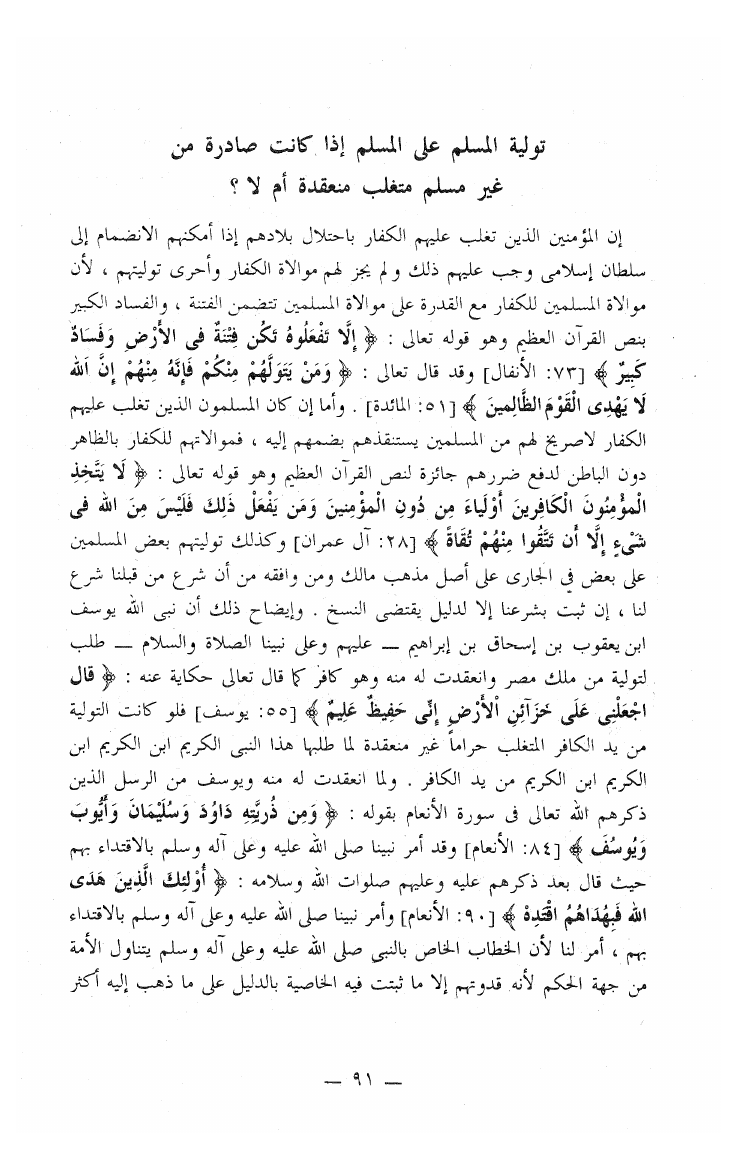 تولية المسلم على المسلم إذا كانت صادرة من
غير مسلم متغلب منعقدة أم لا ؟
إن المؤمنين الذين تغلب عليهم الكفار باحتلال بلادهم إذا أمكنهم الانضمام إلى
سلطان إسلامى وجب عليهم ذلك ولم يجز لهم موالاة الكفار وأحرى توليتهم ، لأن
موالاة المسلمين للكفار مع القدرة على موالاة المسلمين تتضمن الفتنة ، والفساد الكبير
بنص القرآن العظيم وهو قوله تعالى : ﴿ إِلَّا تَفْعَلُوهُ تَكُن فِتْنَةٌ فى الأَرْضِ وَفَسَادٌ
كَبِيرٌ ﴾ [٧٣: الأنفال] وقد قال تعالى : ﴿ وَمَنْ يَتَوَلَّهُمْ مِنْكُمْ فَإِنَّهُ مِنْهُمْ إِنَّ اَللهَ
لَا يَهْدِى الْقَوْمَ الظَّالِمِينَ ﴾ [٥١: المائدة] . وأما إن كان المسلمون الذين تغلب عليهم
الكفار لاصريخ لهم من المسلمين يستنقذهم بضمهم إليه ، فموالاتهم للكفار بالظاهر
دون الباطن لدفع ضررهم جائزة لنص القرآن العظيم وهو قوله تعالى : ﴿ لَا يَتَّخِذِ
الْمؤْمِنُونَ الْكَافِرِينَ أَوْلَيَاءَ مِن دُونِ الْمؤْمِنينَ وَمَن يَفْعَلْ ذَلِكَ فَلَيْسَ مِنَ الله فى
شَىْءٍ إِلَّا أَن تَتَّقُوا مِنْهُمْ تُقَاةً ﴾ [٢٨: آل عمران] وكذلك توليتهم بعض المسلمين
على بعض في الجارى على أصل مذهب مالك ومن وافقه من أن شرع من قبلنا شرع
لنا ، إن ثبت بشرعنا إلا لدليل يقتضى النسخ . وإيضاح ذلك أن نبى الله يوسف
ابن يعقوب بن إسحاق بن إبراهيم — عليهم وعلى نبينا الصلاة والسلام — طلب
لتولية من ملك مصر وانعقدت له منه وهو كافر كما قال تعالى حكاية عنه : ﴿ قال
اجْعَلْنِى عَلَى خَزَآئِنِ اْلأَرْضِ إِنِّى حَفِيظٌ عَلِيمٌ ﴾ [٥٥: يوسف] فلو كانت التولية
من يد الكافر المتغلب حراماً غير منعقدة لما طلبها هذا النبى الكريم ابن الكريم ابن
الكريم ابن الكريم من يد الكافر . ولما انعقدت له منه ويوسف من الرسل الذين
ذكرهم الله تعالى فى سورة الأنعام بقوله : ﴿ وَمِن ذُرِيَّتِهِ دَاوُدَ وَسُلَيْمَانَ وَأَيُّوبَ
وَيُوسُفَ ﴾ [٨٤: الأنعام] وقد أمر نبينا صلى الله عليه وعلى آله وسلم بالاقتداء بهم
حيث قال بعد ذكرهم عليه وعليهم صلوات الله وسلامه : ﴿ أُوْلئِكَ الَّذِينَ هَدَى
الله فَبِهُدَاهُمُ اقْتَدِهْ ﴾ [٩٠: الأنعام] وأمر نبينا صلى الله عليه وعلى آله وسلم بالاقتداء
بهم ، أمر لنا لأن الخطاب الخاص بالنبى صلى الله عليه وعلى آله وسلم يتناول الأمة
من جهة الحكم لأنه قدوتهم إلا ما ثبتت فيه الخاصية بالدليل على ما ذهب إليه أكثر
— ٩١ —